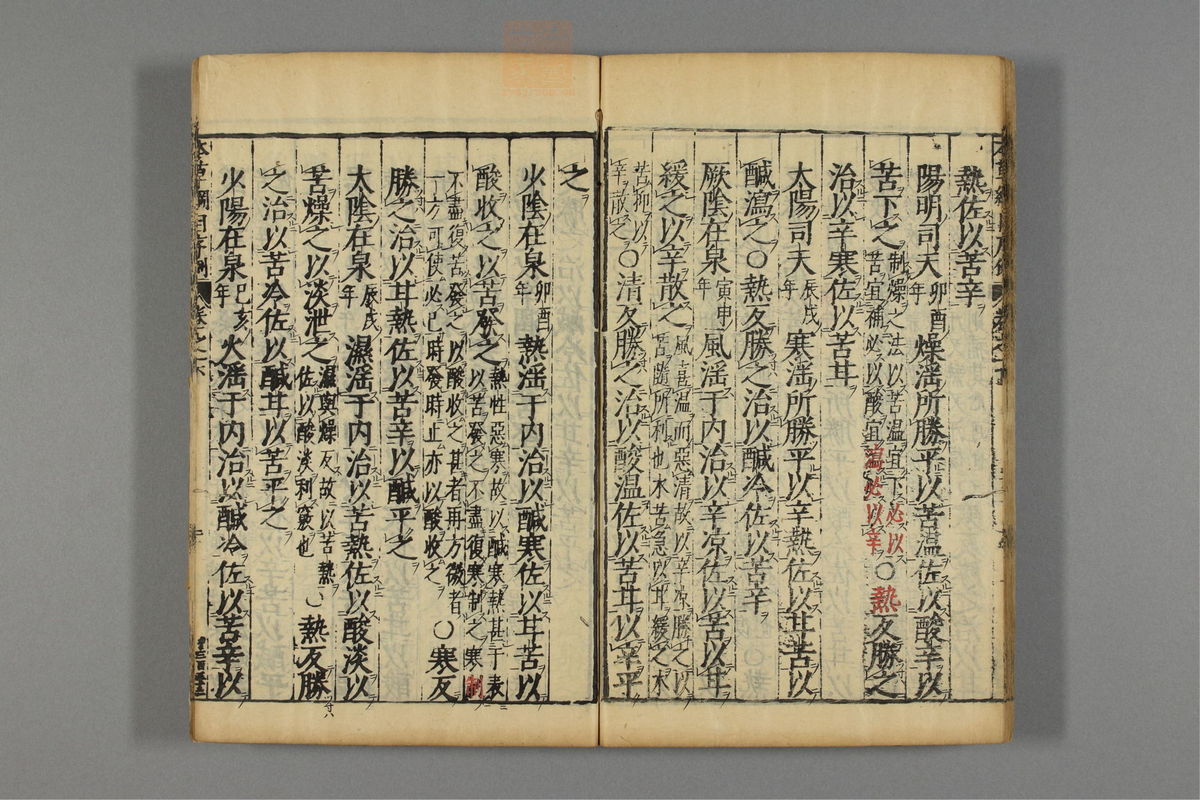 熱佐以苦辛
陽明司天卯酉年燥淫所勝平以苦溫佐以酸辛以
苦下之制燥之法以苦溫宜下必以苦宜補必以酸宜溫必以辛〇熱反勝之
治以辛寒佐以苦甘
太陽司天辰戌年寒淫所勝平以辛熱佐以甘苦以
鹹瀉之〇熱反勝之治以鹹冷佐以苦辛
厥陰在泉寅申年風淫于內治以辛凉佐以苦以甘
緩之以辛散之風喜溫而惡清故以辛凉勝之以苦隨所利也木苦急以甘緩之木
苦抑以辛散之〇清反勝之治以酸溫佐以苦甘以辛平
之
少陰在泉卯酉年熱淫于內治以鹹寒佐以甘苦以
酸收之以苦發之熱性惡寒故以鹹寒熱甚于表以苦發之不盡復寒制之寒制
不盡復苦發之以酸收之甚者再方微者一方可使必已時發時止亦以酸收之〇寒反
勝之治以甘熱佐以苦辛以鹹平之
太陰在泉辰戌年濕淫于內治以苦熱佐以酸淡以
苦燥之以淡泄之濕與燥反故以苦熱佐以酸淡利竅也〇熱反勝
之治以苦冷佐以鹹甘以苦平之
少陽在泉巳亥年火淫于內治以鹹冷佐以苦辛以